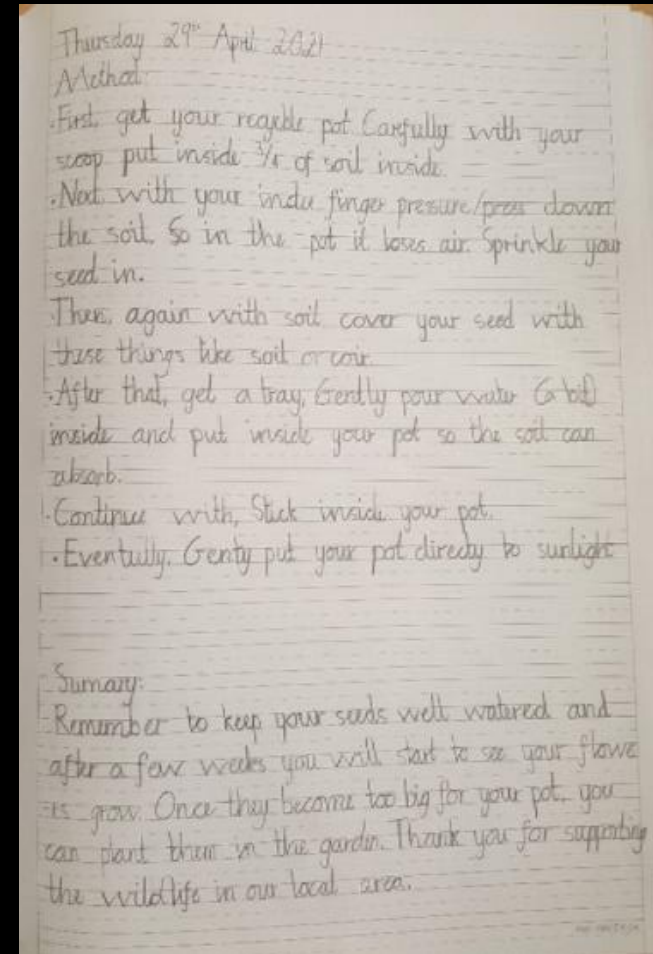 Thursday 29th April 2021
Method:
• First, get your recycble pot Carfully with your
scoop put inside 3/4 of soil inside.
• Next with your index finger pressure/press down
the soil. So in the pot it loses air. Sprinkle your
seed in.
• Then, again with soil cover your seed with
these things like soil or coir.
• After that, get a tray, Gently pour water (a bit)
inside and put inside your pot so the soil can
absorb.
• Continue with, Stick inside your pot.
• Eventully, Genty put your pot direcly to sunlight
Sumary:
Remember to keep your seeds well watered and
after a few weeks you will start to see your flowe
rs grow. Once they become too big for your pot, you
can plant them in the garden. Thank you for supporting
the wildlife in our local area.